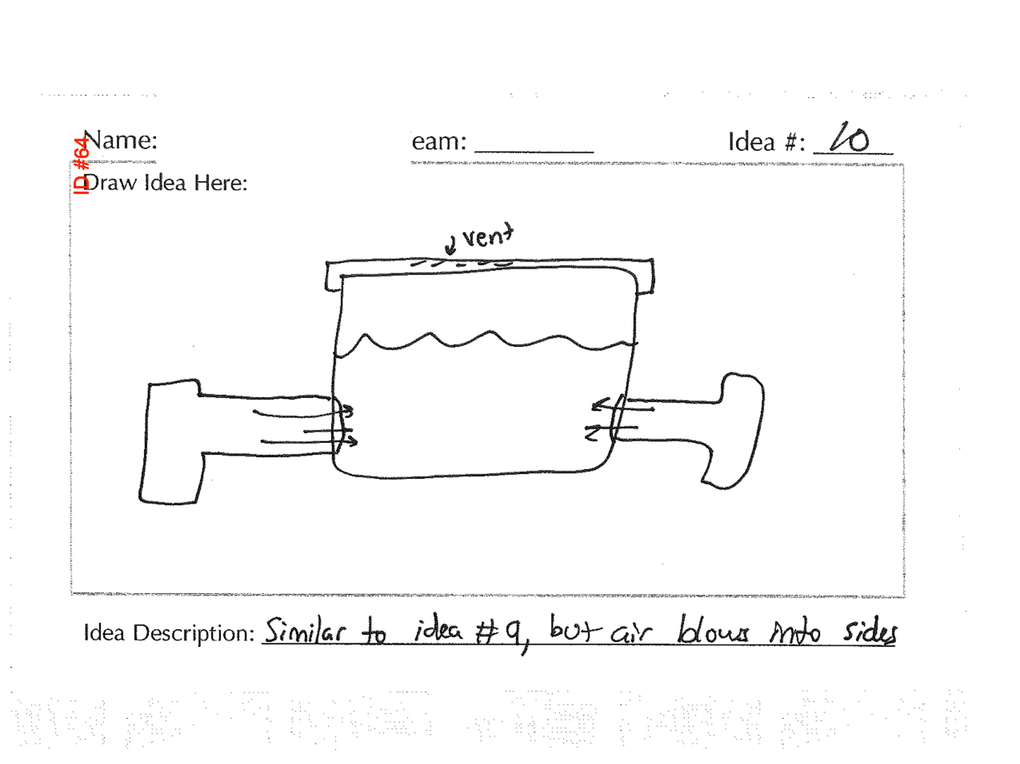 Name: eam: Idea #: 10
ID #64
Draw Idea Here:
vent
Idea Description: Similar to idea #9, but air blows into sides